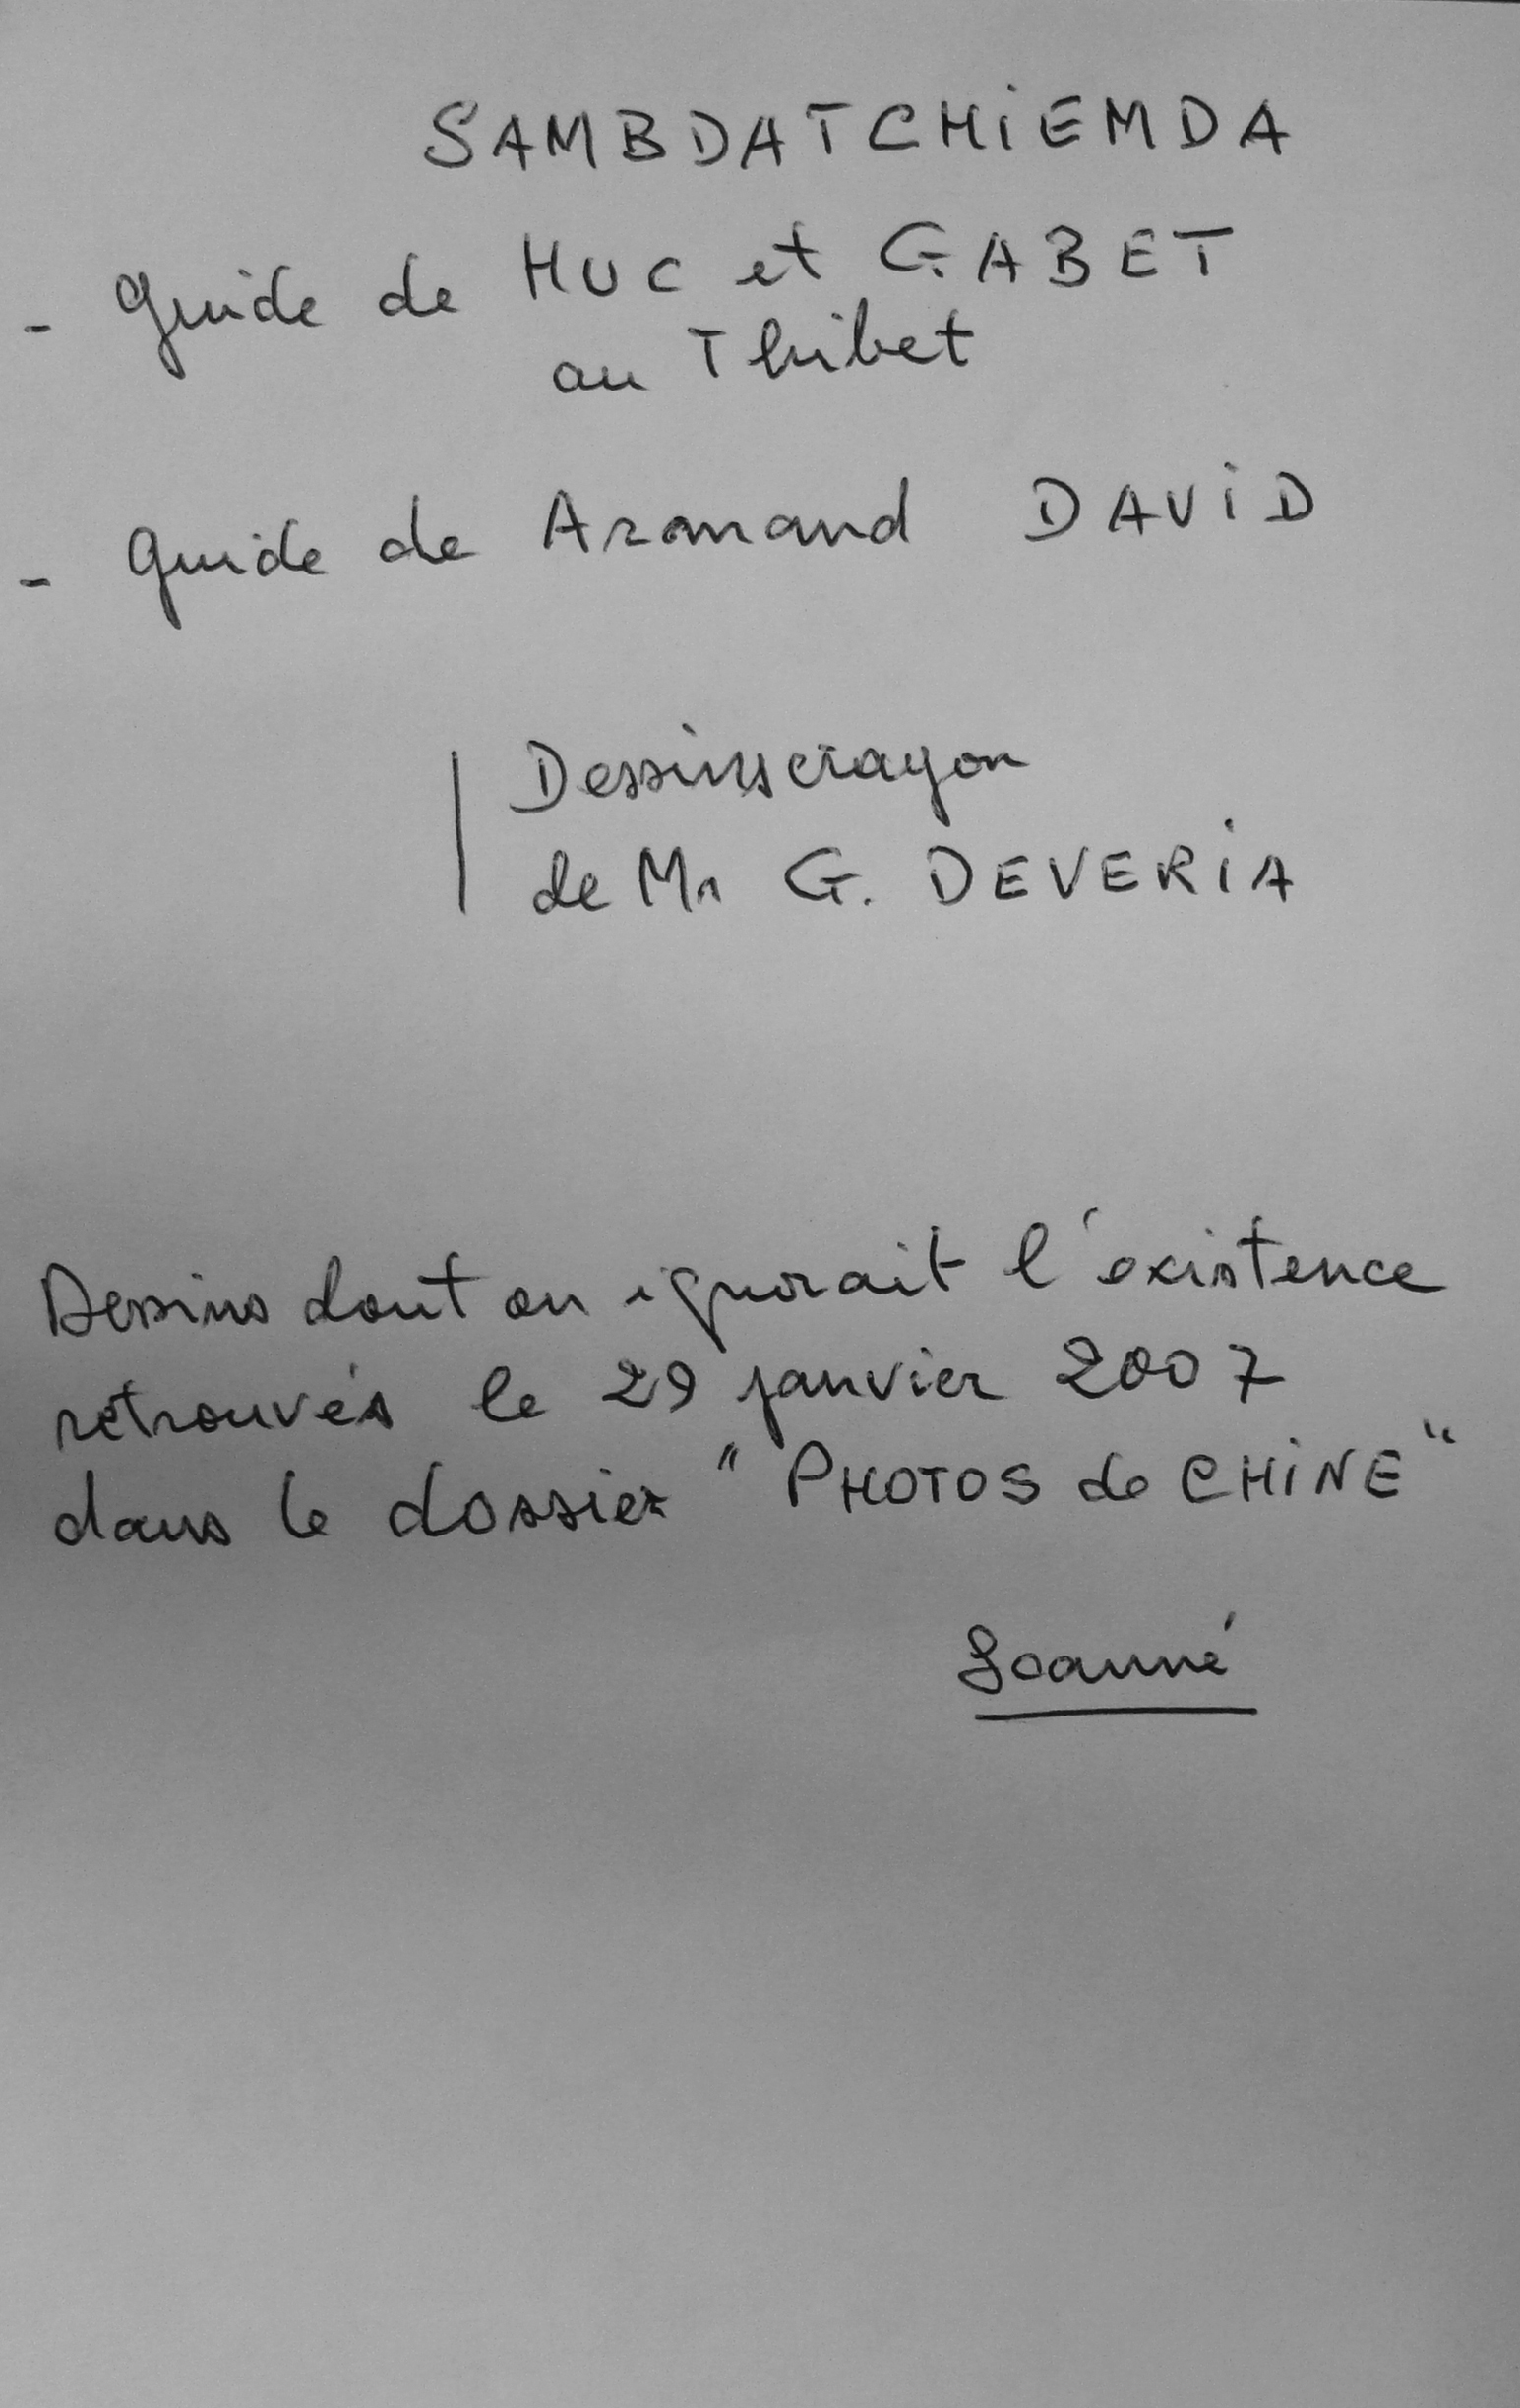 SAMBDATCHiEMDA
- guide de HUC et GABET
au Thibet
- guide de Armand DAViD
Dessins crayon
de Mr G. DEVERiA
Dessins dont on ignorait l'existence
retrouvés le 29 janvier 2007
dans le dossier "PHOTOS de CHiNE"
Scanné